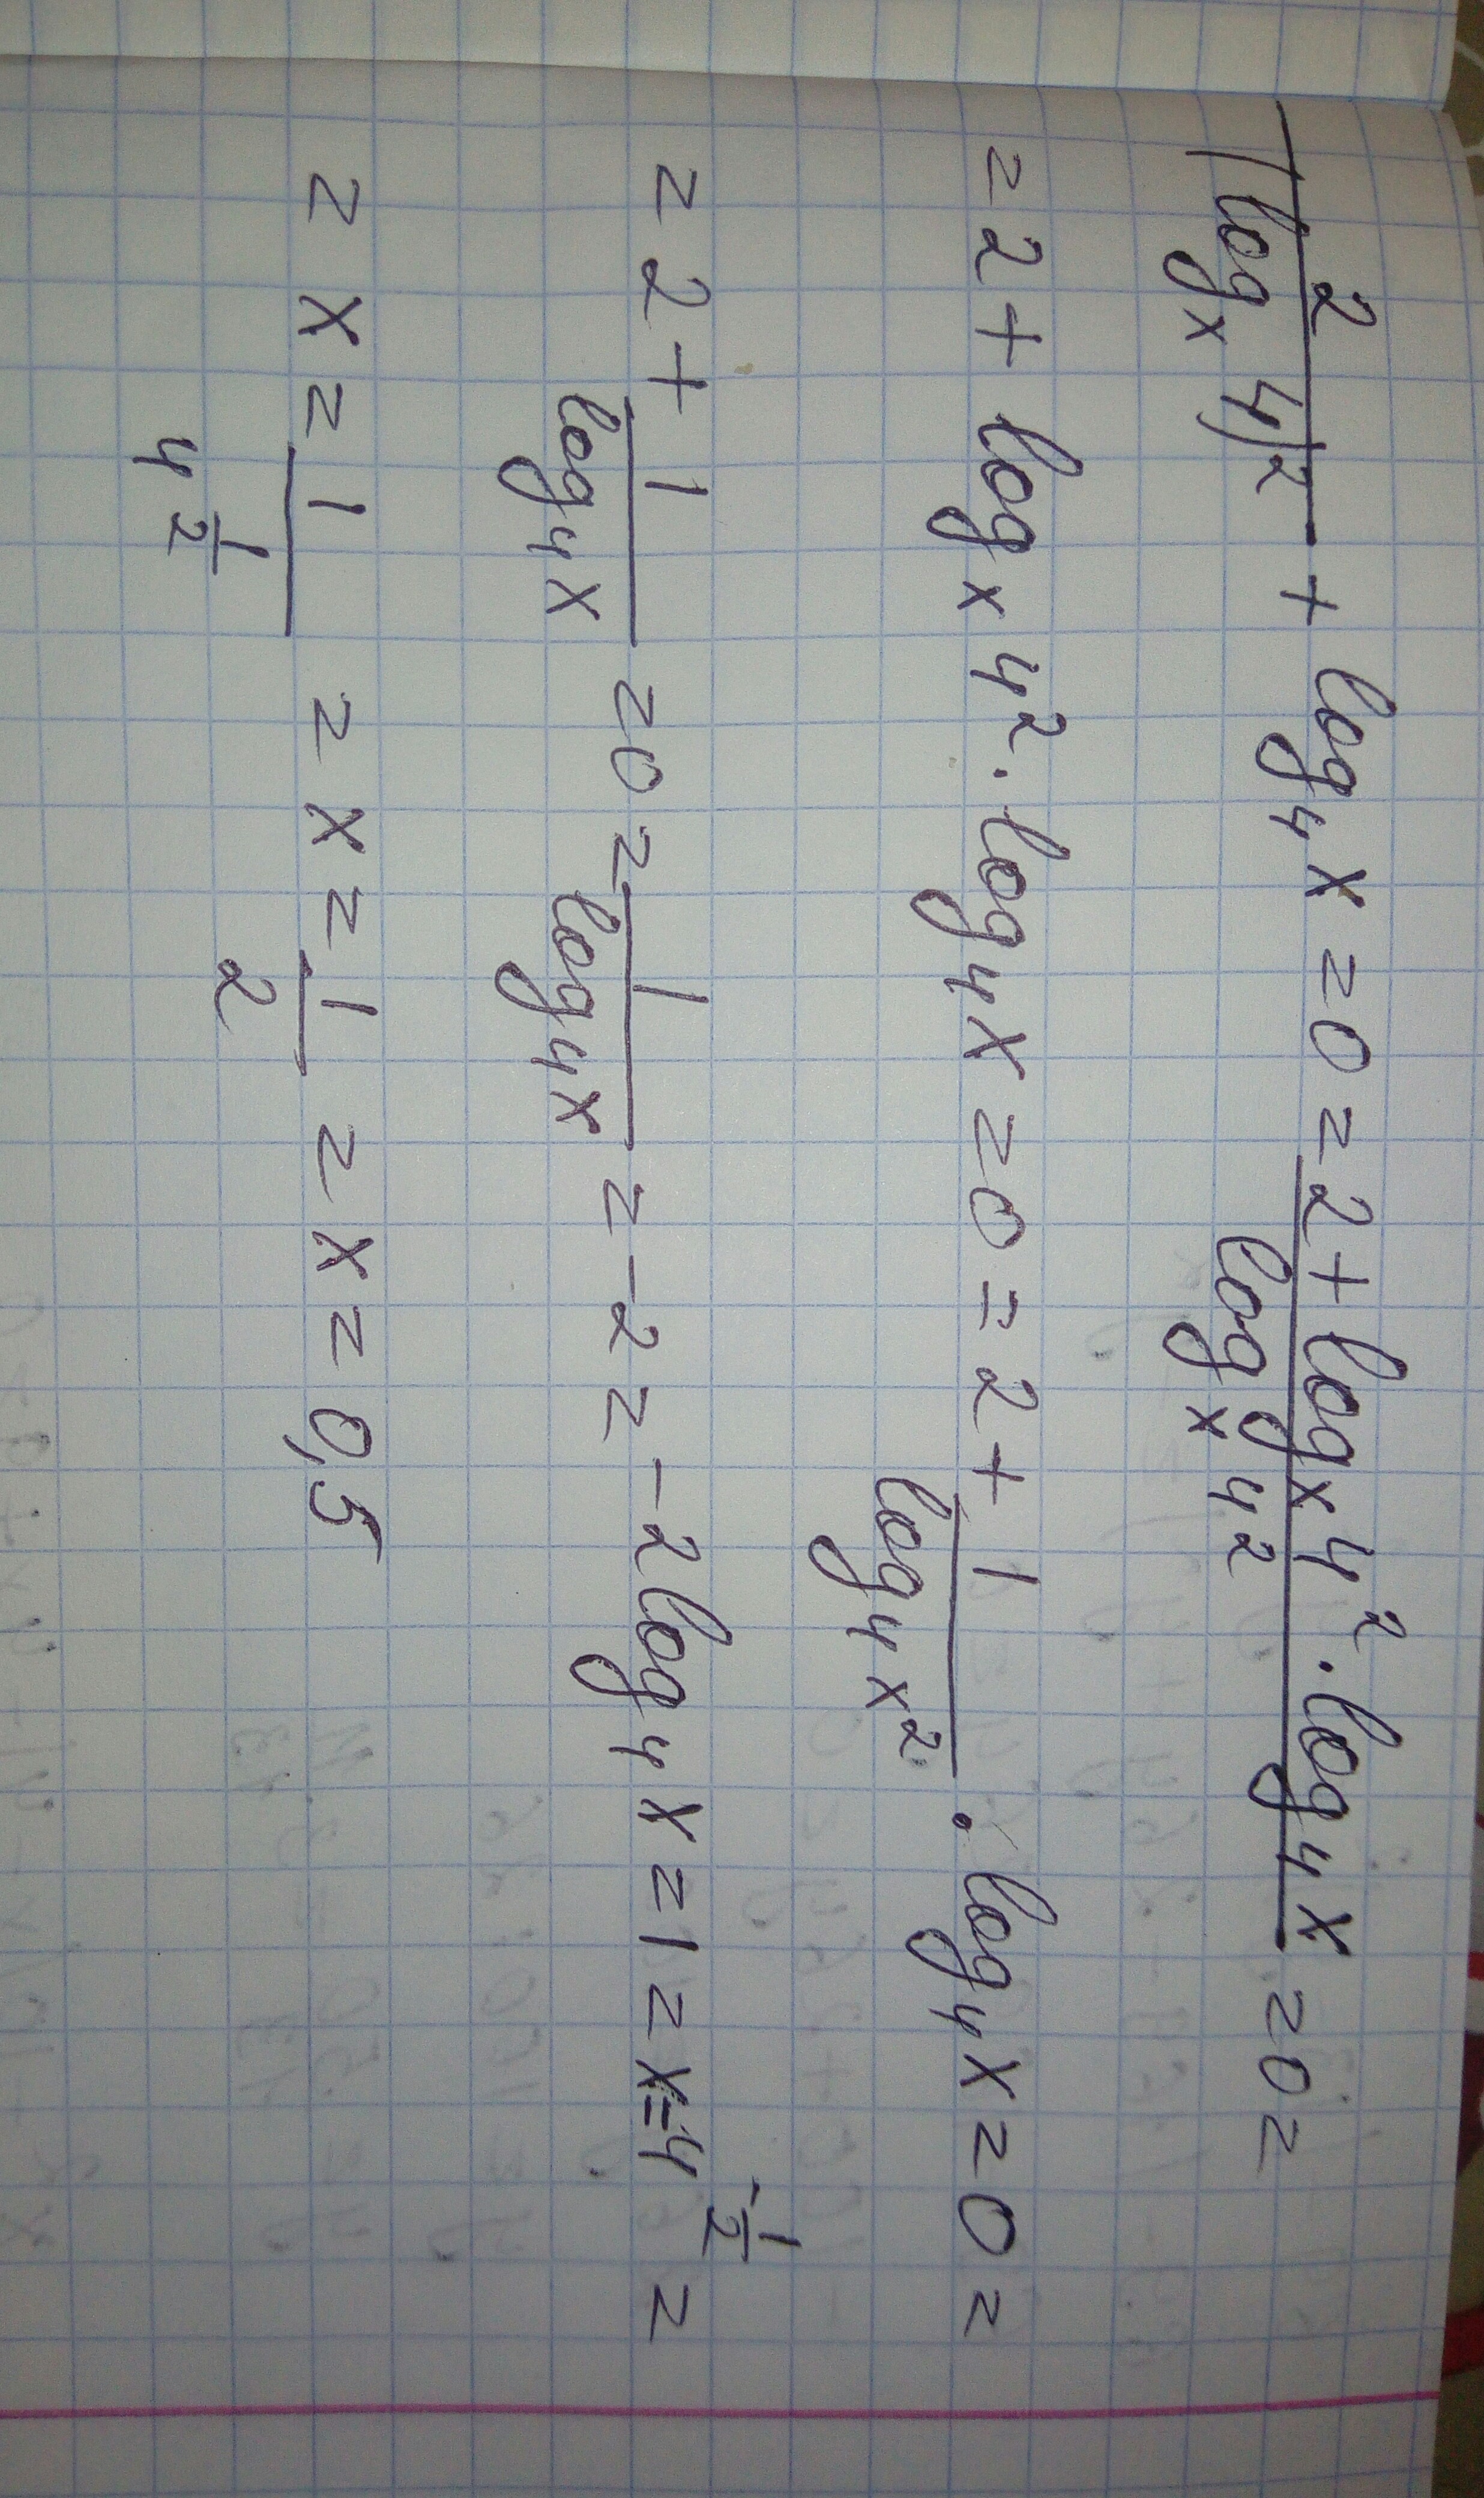 2/(log_x 4)^2 + log_4 x = 0 = (2 + log_x 4^2 · log_4 x)/(log_x 4^2) = 0 =
= 2 + log_x 4^2 · log_4 x = 0 = 2 + 1/(log_4 x^2) · log_4 x = 0 =
= 2 + 1/(log_4 x) = 0 = 1/(log_4 x) = -2 = -2 log_4 x = 1 = x = 4^(-1/2) =
= x = 1/(4^(1/2)) = x = 1/2 = x = 0,5